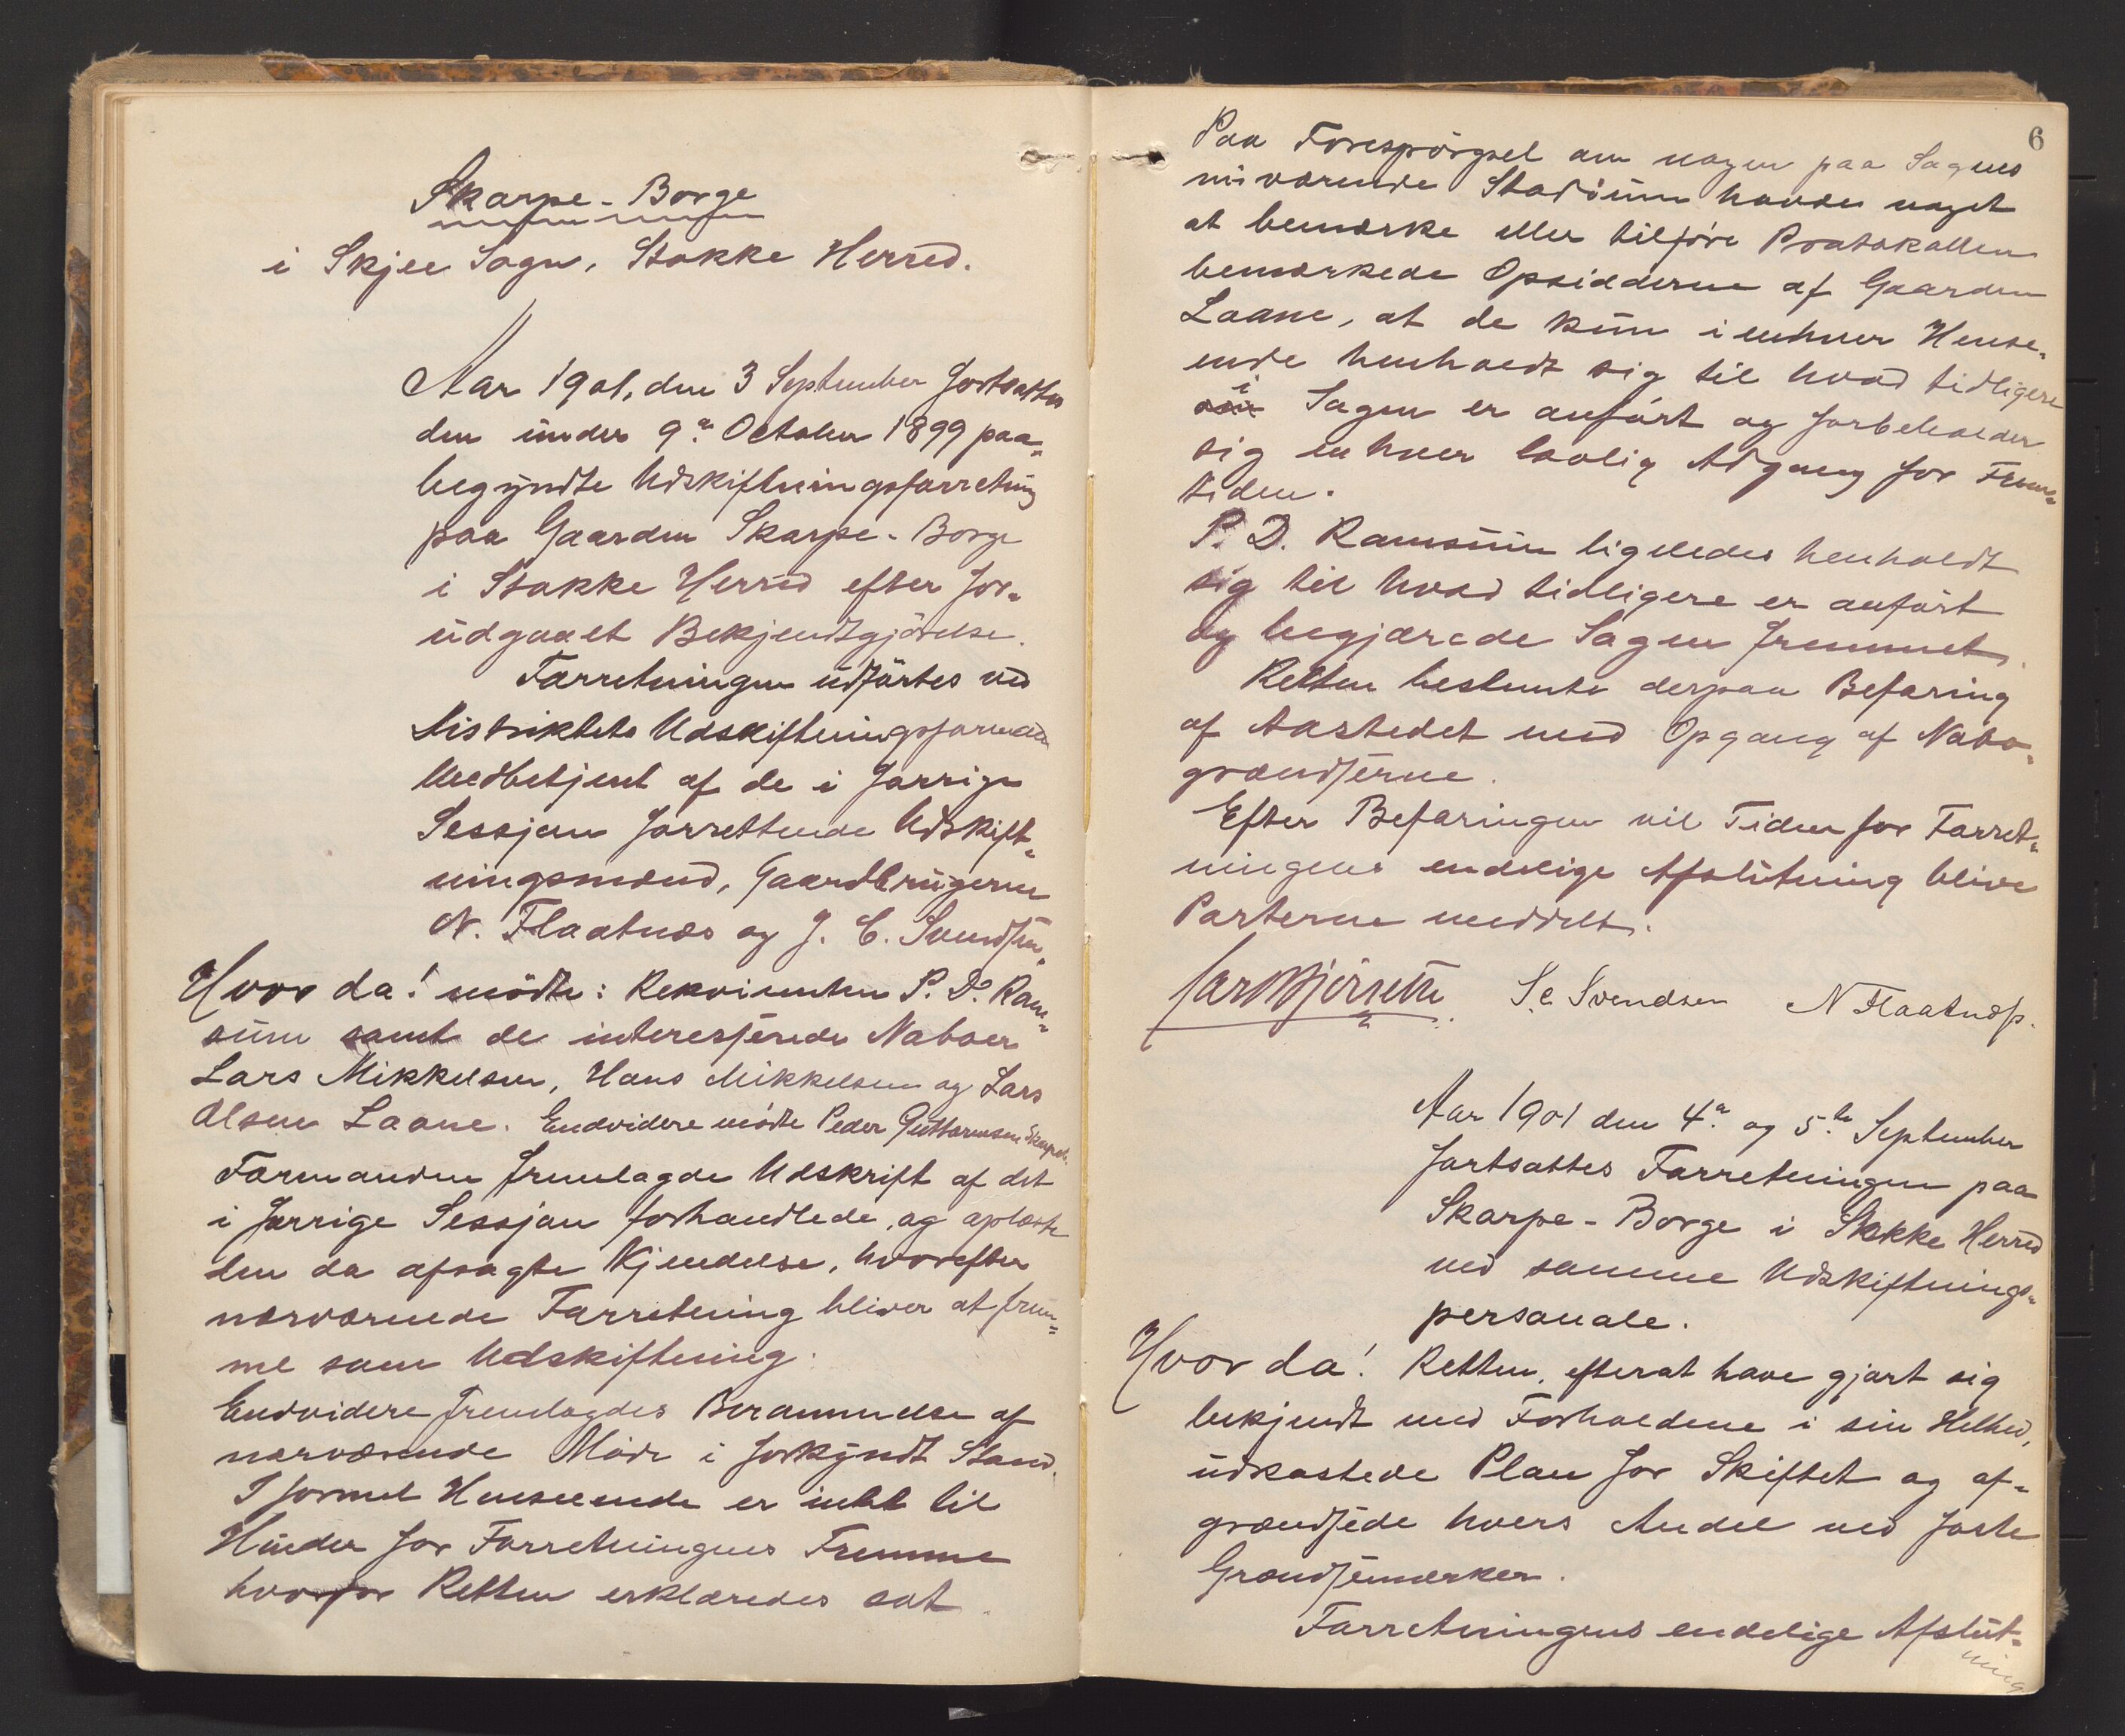 Skarpe-Borge
i Skjee Sogn, Stokke Herred.
Aar 1901, den 3 September fortsattes
den under 9de October 1899 paa=
begyndte Udskiftningsforretning
paa Gaarden Skarpe-Borge
i Stokke Herred efter for=
udgaaet Bekjendtgjörelse.
Forretningen udförtes ved
Distriktets Udskiftningsformand
medbetjent af de i forrige
Sessjon forrettende Udskift=
ningsmænd, Gaardbrugerne
N. Flaatnæs og J. C. Svendsen.
Hvor da! mödte: Rekvirenten P. D. Ram=
sum samt de interesserede Naboer
Lars Mikkelsen, Hans Mikkelsen og Lars
Olsen Laane. Endvidere mödte Peder Guttormsen Skarpe.
Formanden fremlagde Udskrift af det
i forrige Sessjon forhandlede, og oplæste
den da afsagte Kjendelse, hvorefter
nærværende Forretning bliver at frem=
me som Udskiftning.
Endvidere fremlagdes Berammelse af
nærværende Möde i forkyndt Stand.
I formel Henseende er intet til
Hinder for Forretningens Fremme
hvorfor Retten erklæredes sat.
6
Paa Forespörgsel om nogen paa Sagens
nuværende Stadium havde noget
at bemærke eller tilföre Protokollen
bemærkede Opsidderne af Gaarden
Laane, at de kun i enhver Hense=
ende henholdt sig til hvad tidligere
i
Sagen er anfört og forbeholder
sig enhver lovlig Adgang for Frem=
tiden.
P. D. Ramsum ligeledes henholdt
sig til hvad tidligere er anfört
og begjærede Sagen fremmet.
Retten bestemte derpaa Befaring
af Aastedet med Opgang af Nabo=
grændserne.
Efter Befaringen vil Tiden for Forret=
ningens endelige Afslutning blive
Parterne meddelt.
S. C. Svendsen N Flaatnæs.
Aar 1901 den 4de og 5te September
fortsattes Forretningen paa
Skarpe-Borge i Stokke Herred
ved samme Udskiftnings=
personale.
Hvor da! Retten, efterat have gjort sig
bekjendt med Forholdene i sin Helhed,
udkastede Plan for Skiftet og af=
grændsede hvers Andel ved faste
Grændsemærker.
Forretningens endelige Afslut=
ning